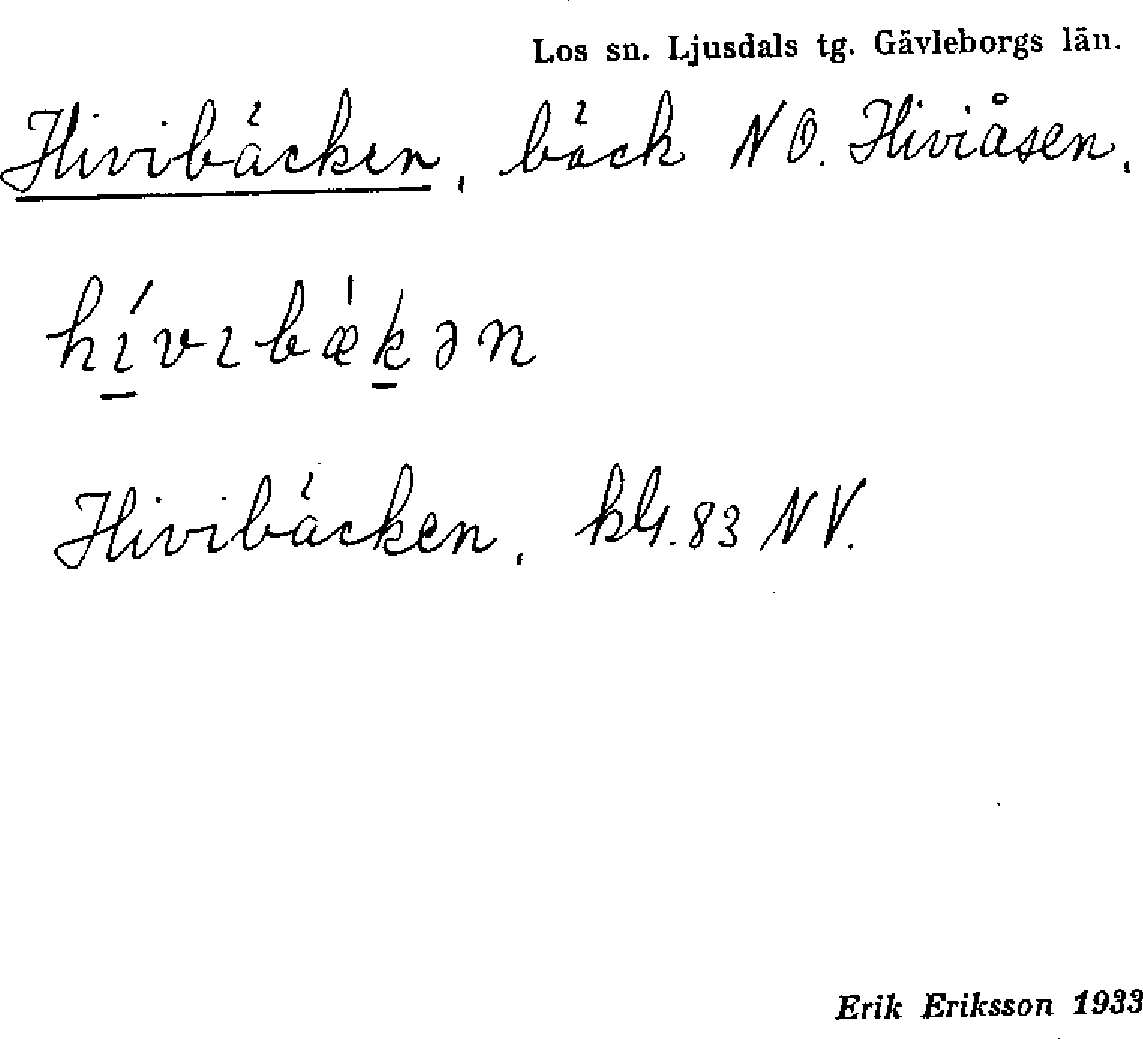 Los sn. Ljusdals tg. Gävleborgs län.
Hivibäcken, bäck NO. Hiviåsen,
hívıbæ̍kən
Hivibäcken, kbl.83 NV.
Erik Eriksson 1933